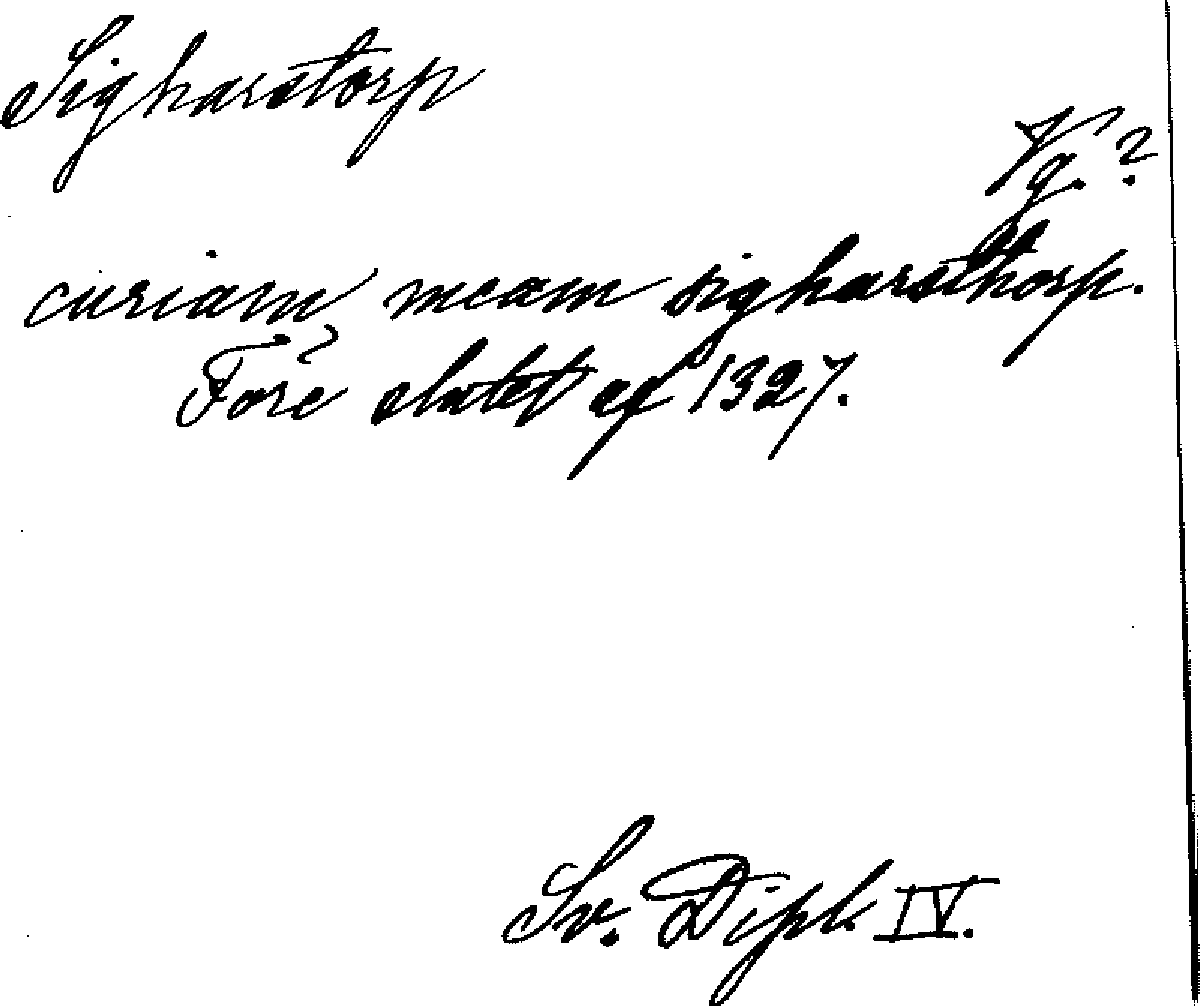 Sigharstorp
Vg.?
curiam meam sigharsthorp.
Före slutet af 1327.
Sv. Dipl. IV.